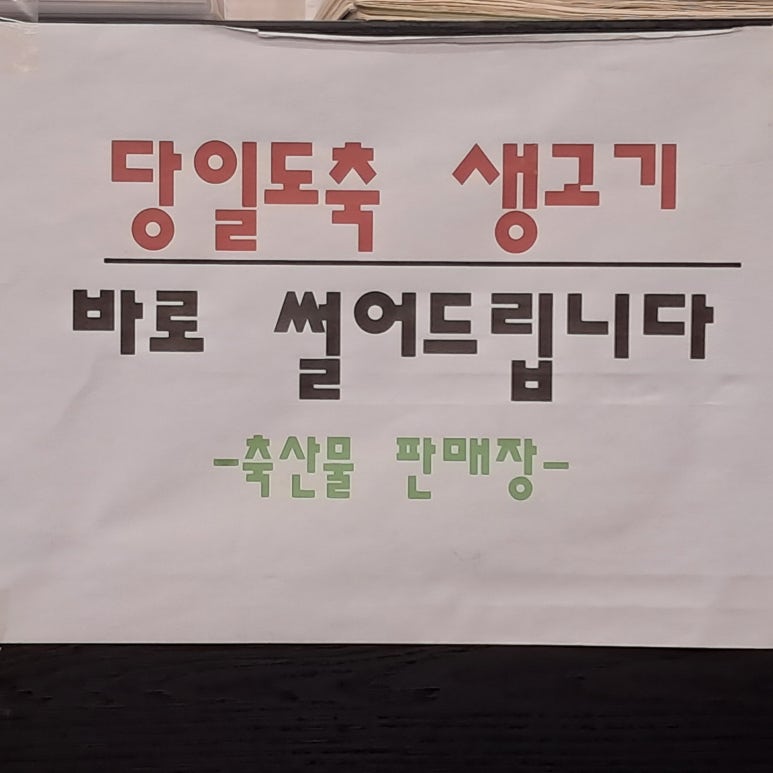 당일도축 생고기
바로 썰어드립니다
-축산물 판매장-